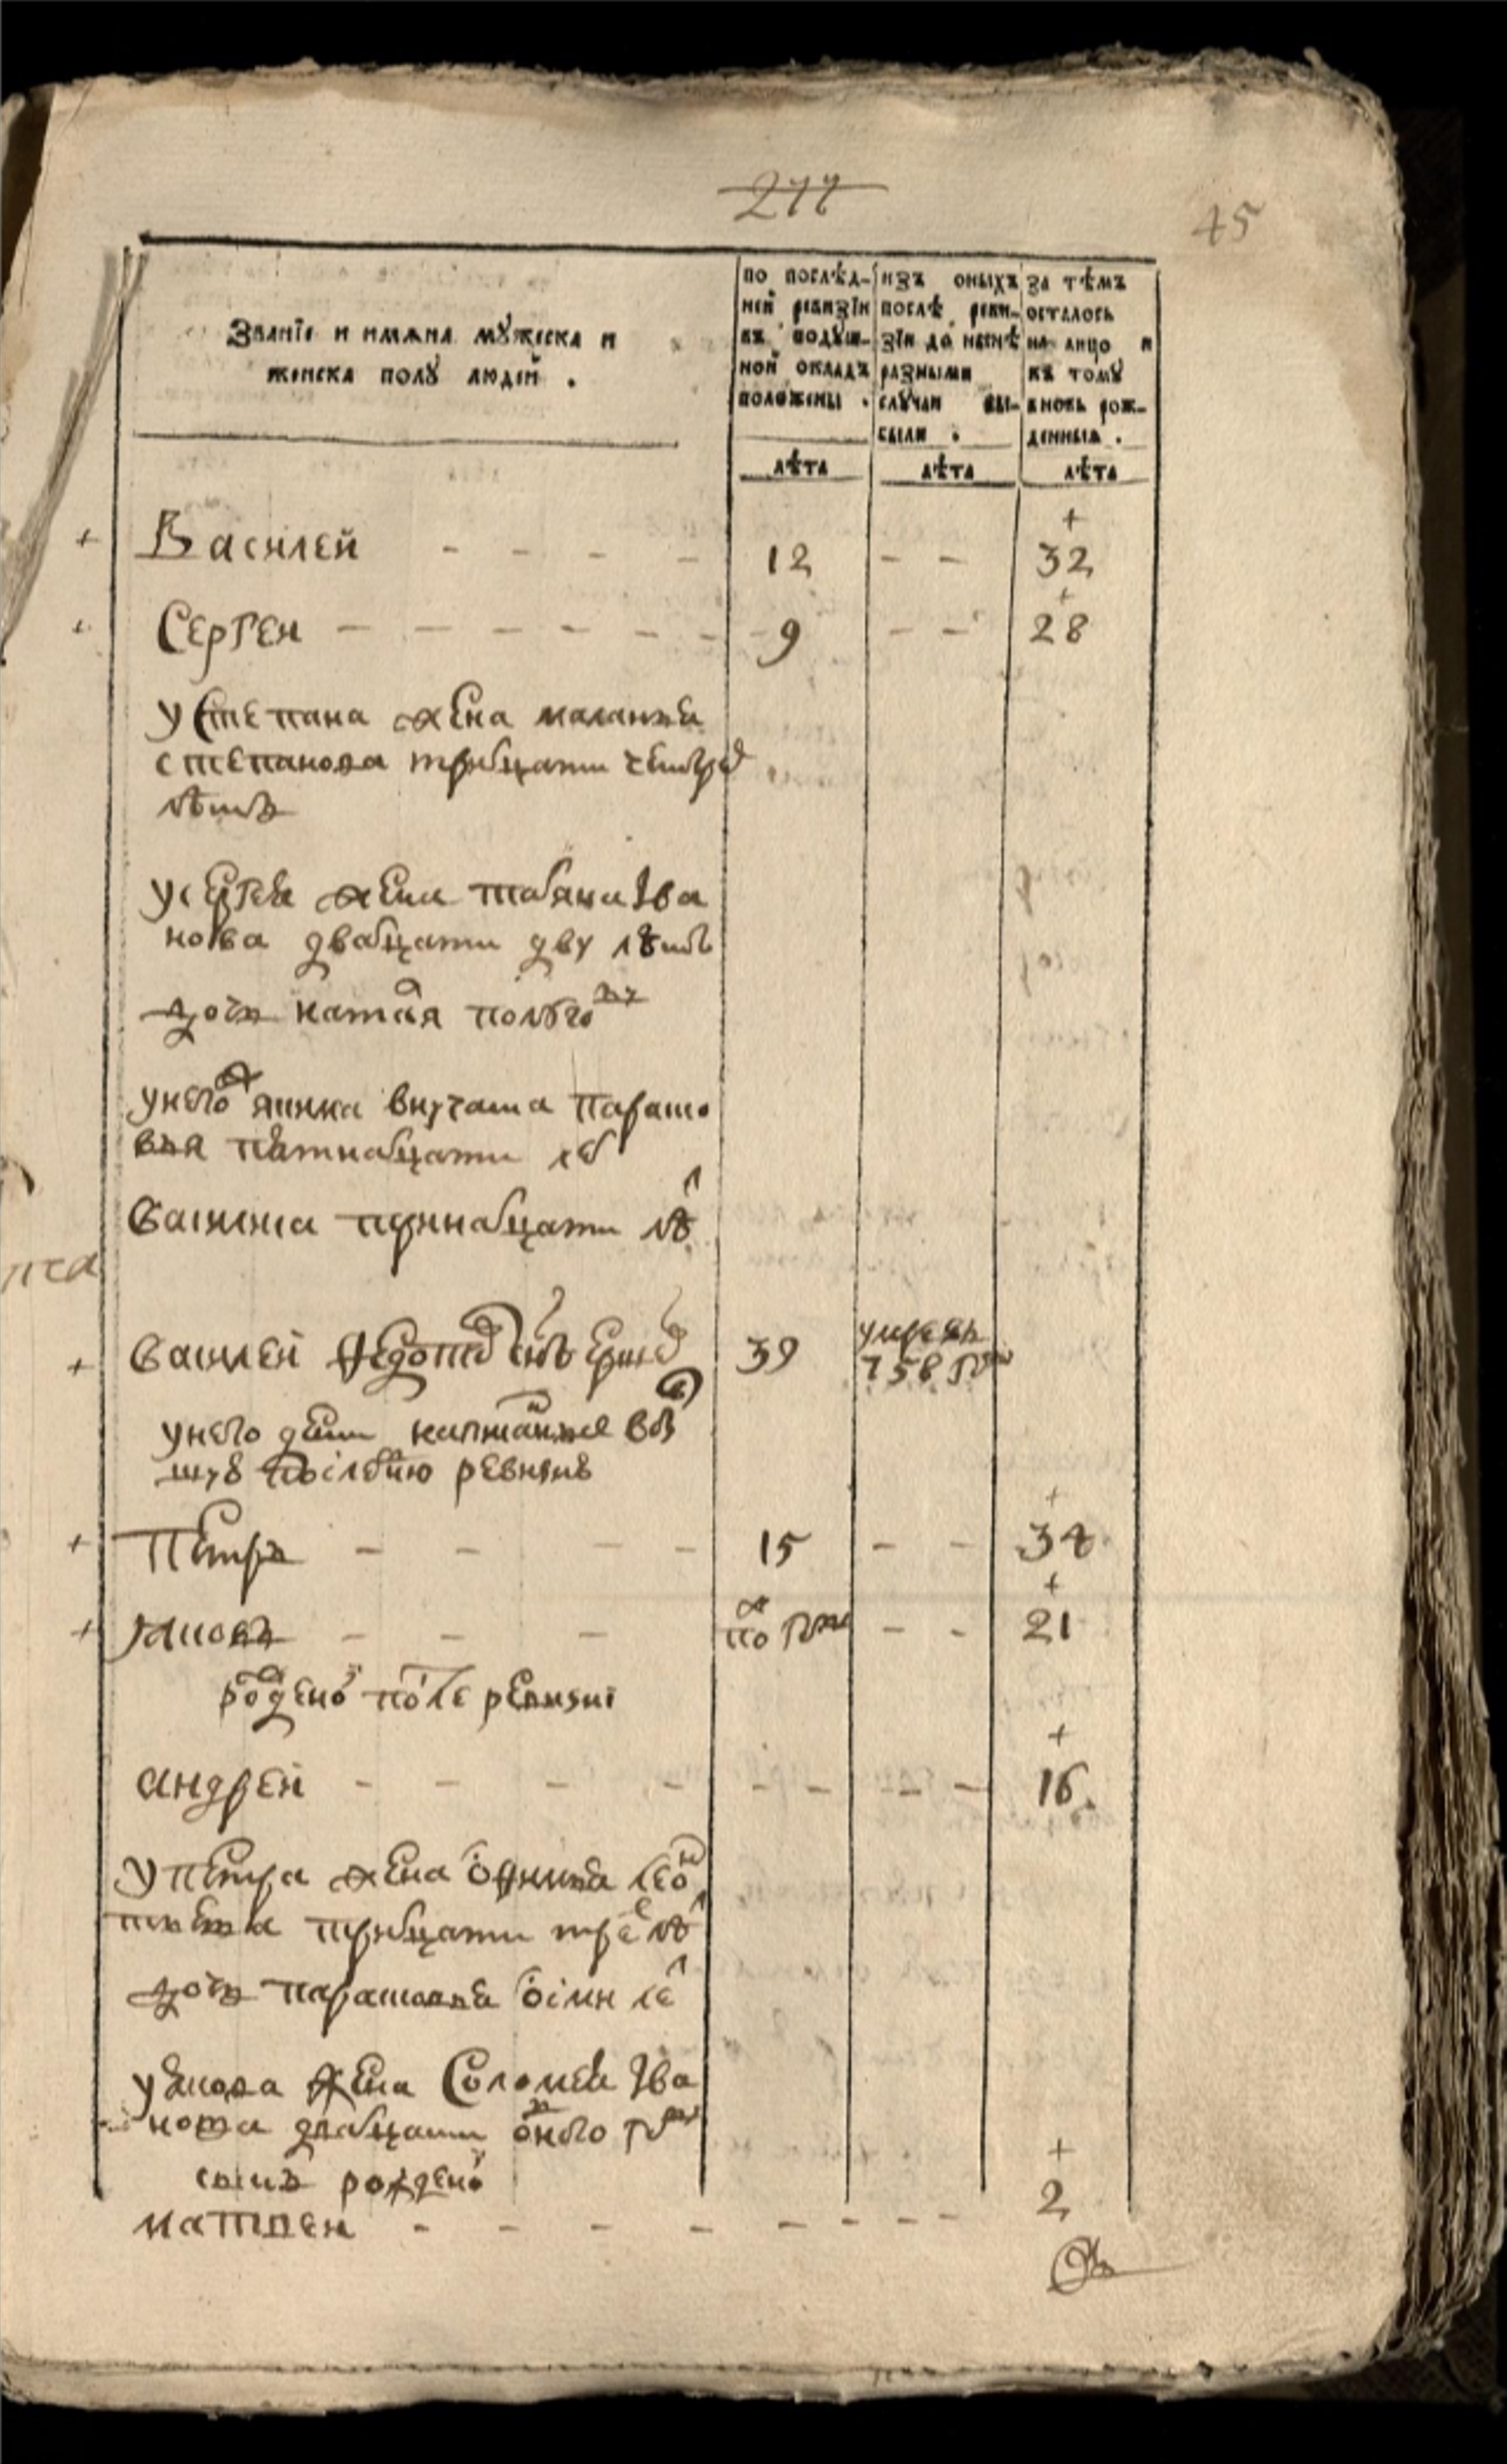 277
45
Званїе и имѧна мꙋжеска и
женска полꙋ людїй .
по послѣд-
ней ревизїи
въ подꙋш-
ной окладъ
положены .
изъ оныхъ
послѣ реви-
зїи до нынѣ
разными
слꙋчаи вы-
были .
за тѣмъ
осталось
на лицо и
къ томꙋ
вновь рож-
денныѧ .
лѣта
лѣта
лѣта
+ Василей - - - - 12 - - + 32
+ Сергеи - - - - - - 9 - - + 28
у степана жена маланья
степанова тритцати
лѣтъ
у сергея жена татьяна Iва
нова дватцати дву лѣтъ
дочь полуго
у него внучата парако
вья пѣтнатцати ле
тринатцати лѣ
+ василей федотов снъ 39 умре въ
758 году
у него дети написанные в
послѣднюю ревизию
+ Петръ - - - - 15 - - + 34
+ яковъ - - - по году - - + 21
рожденой после ревизиi
андрей - - - - - - - - + 16
у петра жена лео
тритцати тре лѣ
дочь парасковья осми ле
у якова жена Соломея Iва
нова дватцати одного году
сынъ рожденой
матвеи - - - - - - - - + 2